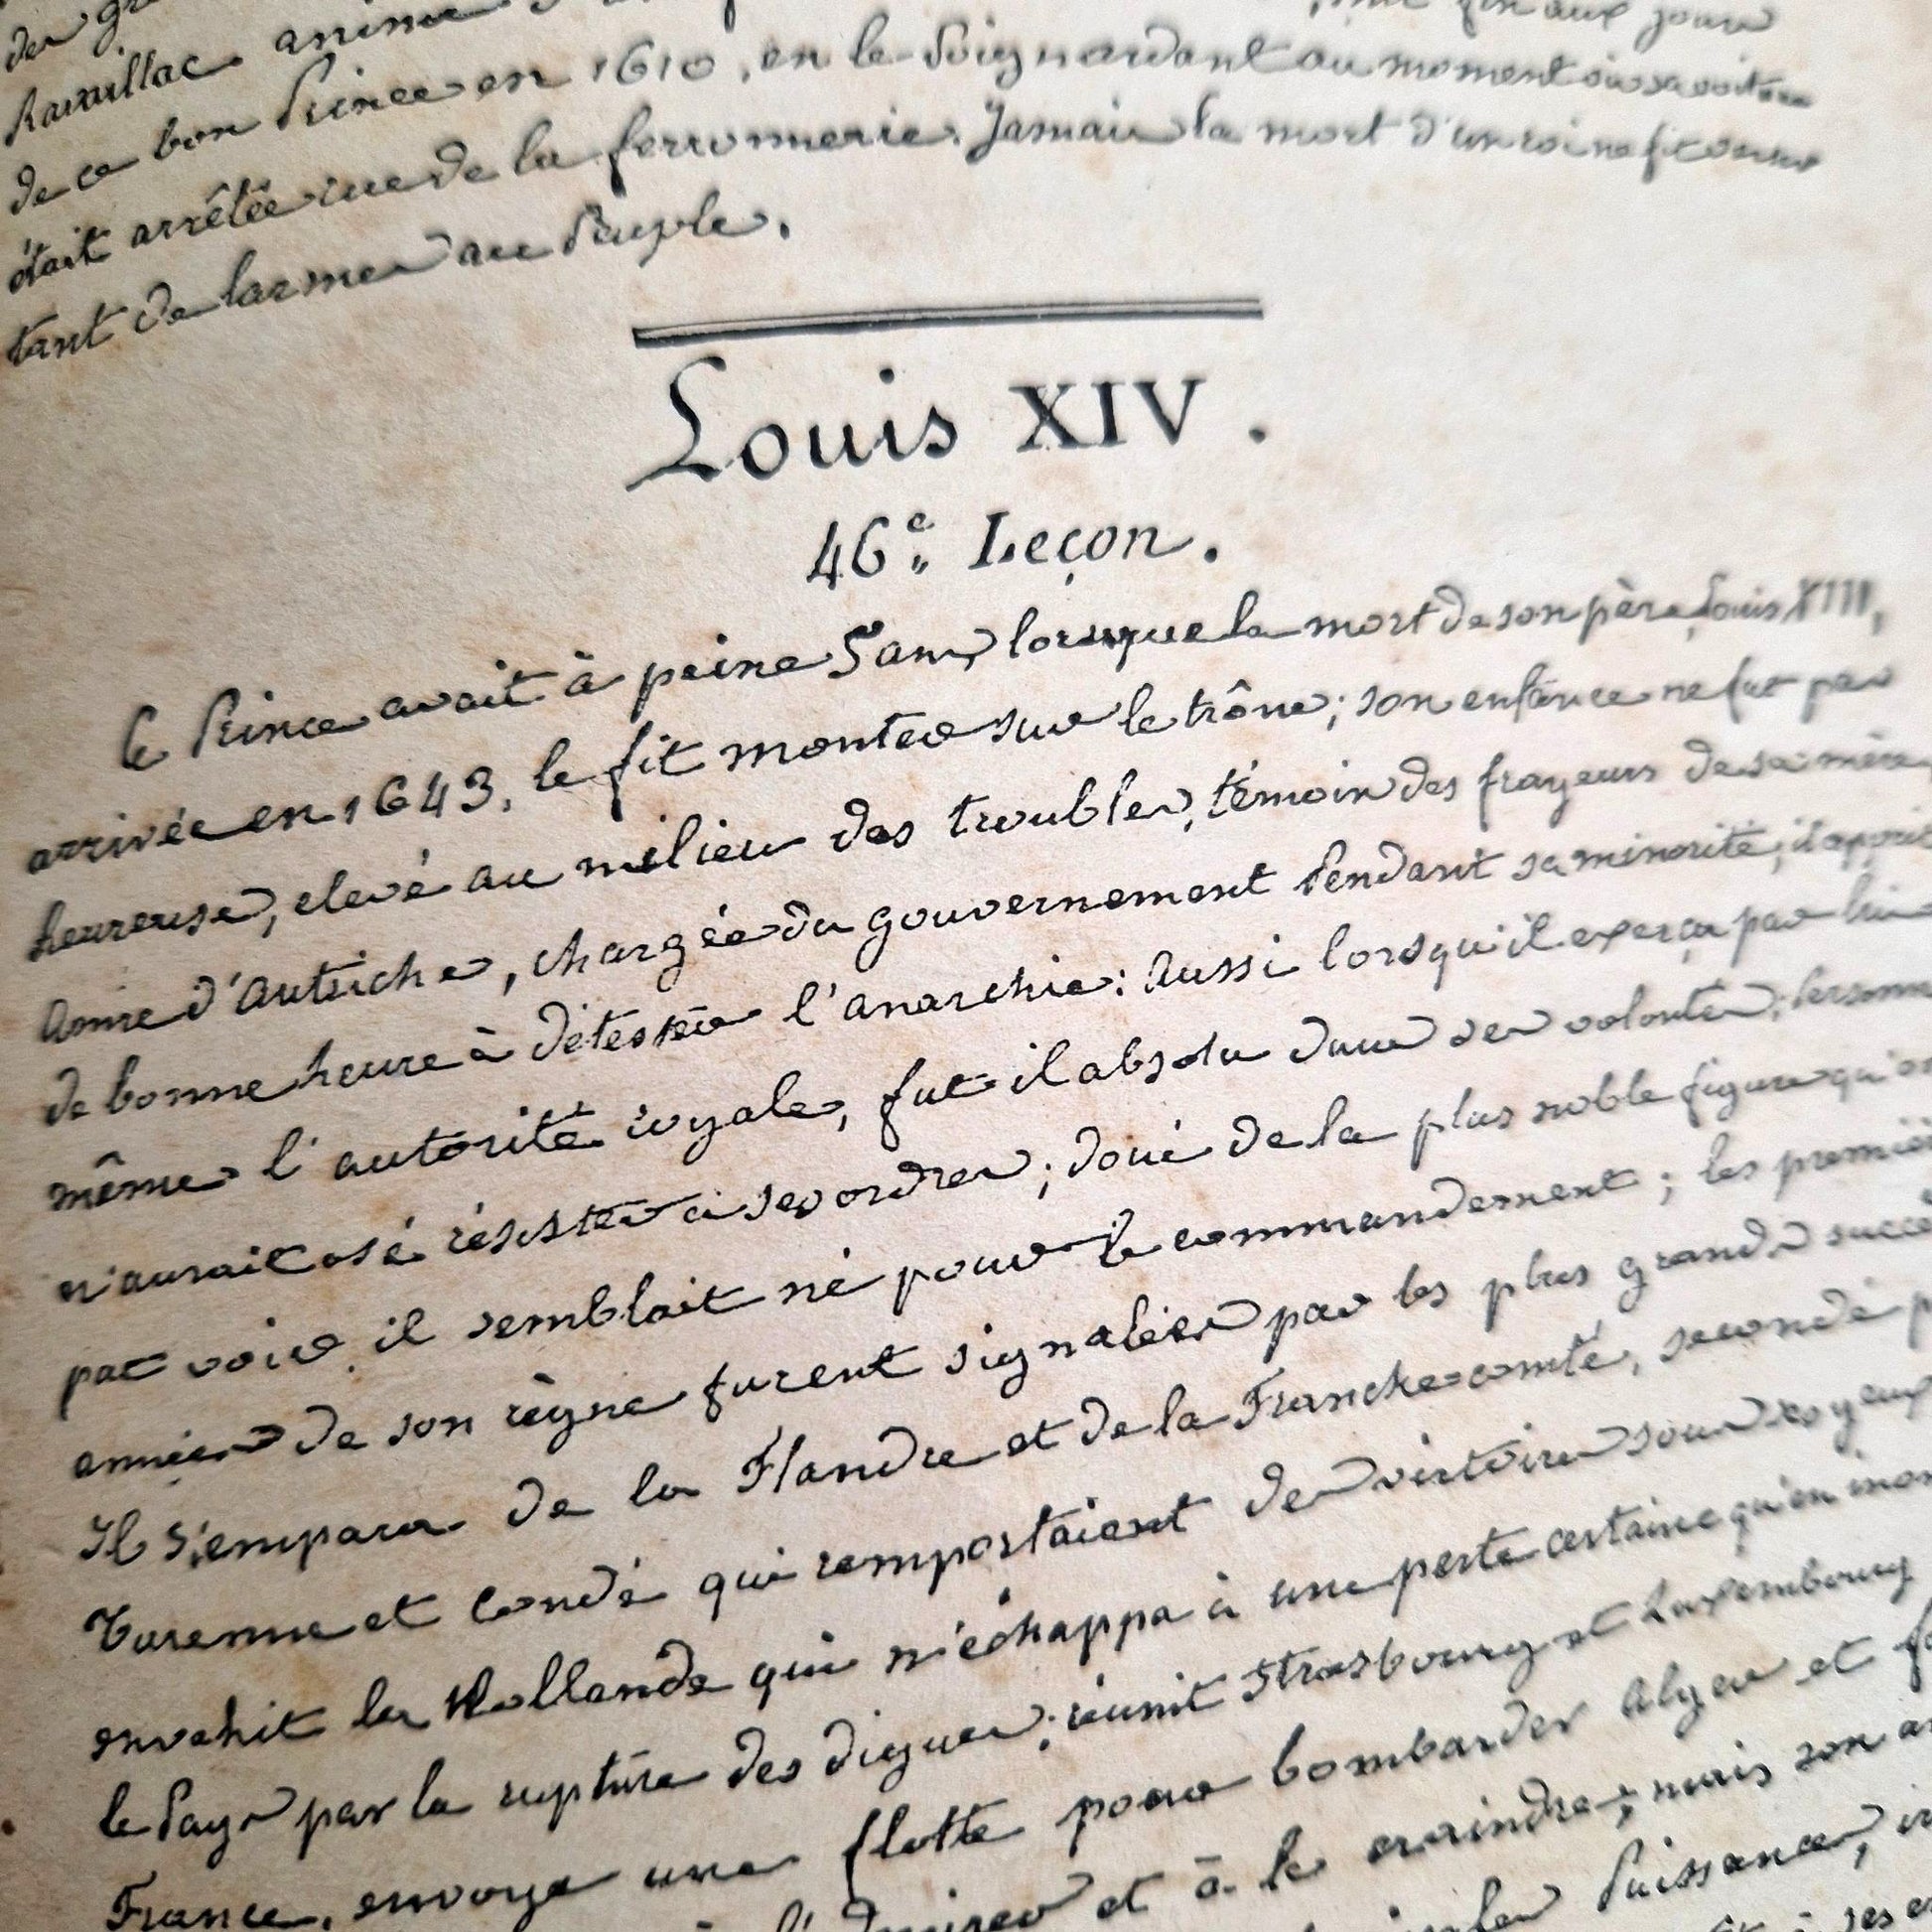 Ravaillac
de ce bon Prince en 1610, en le Poignardant au moment où sa voiture
était arrêtée rue de la ferronnerie. Jamais la mort d'un roi ne fit verser
tant de larmes au Peuple.
Louis XIV.
46e. Leçon.
Ce Prince avait à peine 5 ans, lorsque la mort de son père Louis XIII,
arrivée en 1643, le fit monter sur le trône; son enfance ne fut pas
heureuse, elevé au milieu des troubles, témoin des frayeurs de sa mère
Anne d'Autriche, chargée du gouvernement Pendant sa minorité; il apprit
de bonne heure à détester l'anarchie: Aussi lorsqu'il exerça par lui
même l'autorité royale, fut il absolu dans ses volontés; Personne
n'aurait osé résister à ses ordres; doué de la plus noble figure qu'on
put voir, il semblait né pour le commandement; les premières
années de son règne furent signalées par les plus grands succès
Il S'empara de la Flandre et de la Franche=comté, secondé p
Turenne et Condé qui remportaient des victoires sous ses yeux
envahit la Hollande qui n'échappa à une perte certaine qu'en inon
le Pays par la rupture des digues; réunit Strasbourg et Luxembourg
France, envoya une flotte pour bombarder Alger et f
l'admirer et à le craindre; mais son a
Puissance,